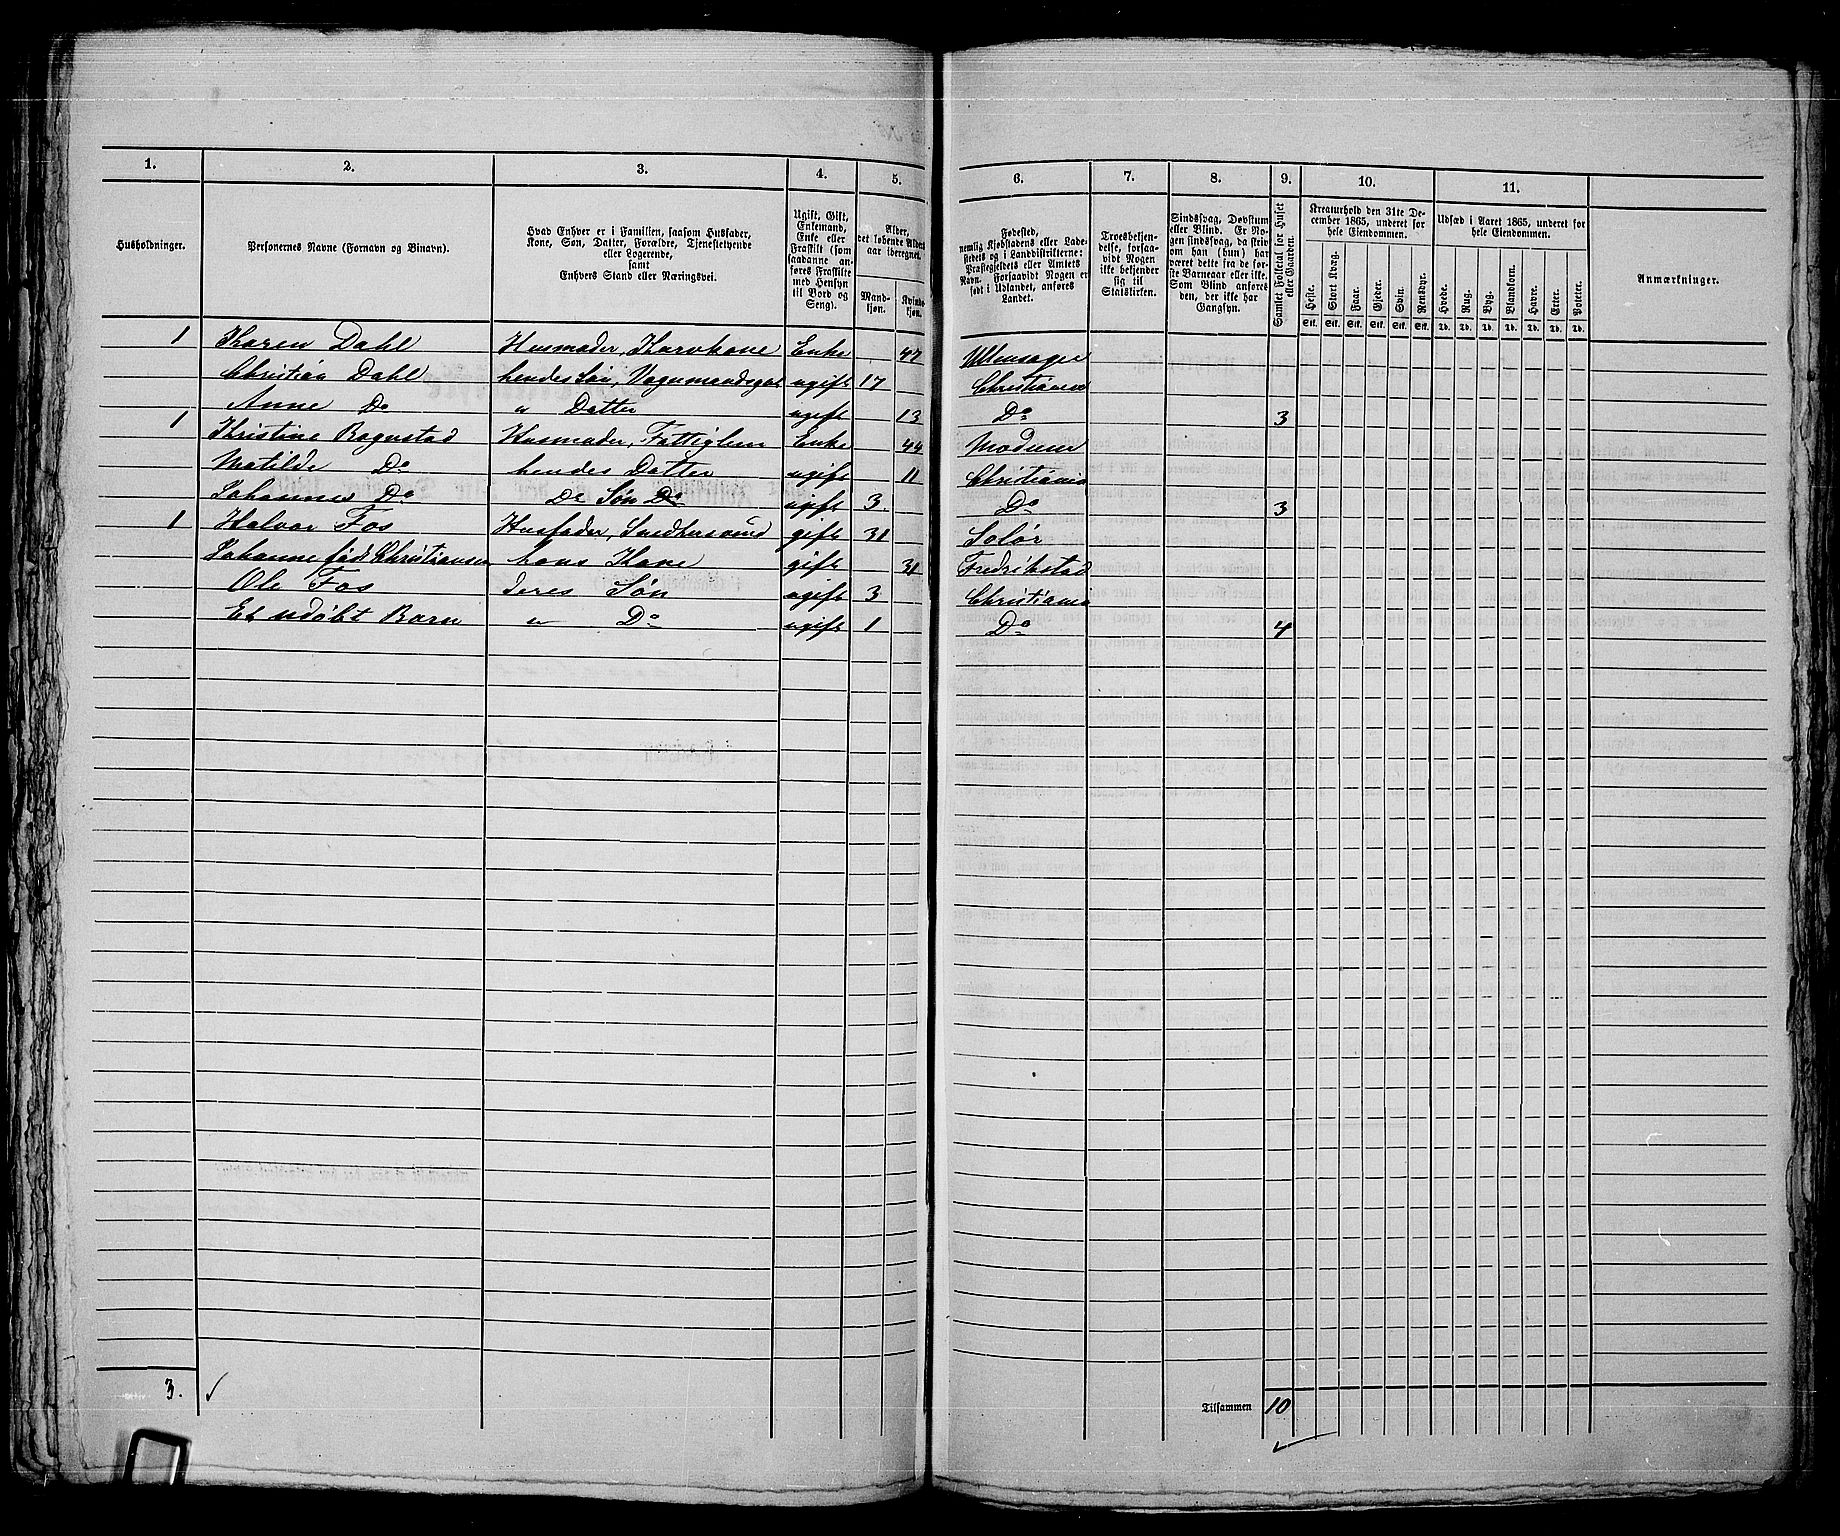 1. 2. 3. 4. 5. 6. 7. 8. 9. 10. 11.
Husholdninger.
Personernes Navne (Fornavn og Binavn).
Hvad Enhver er i Familien, saasom Husfader,
Kone, Søn, Datter, Forældre, Tjenestetyende
eller Logerende,
samt
Enhvers Stand eller Næringsvei.
Ugift, Gift,
Enkemand,
Enke eller
Fraskilt (som
saadanne an-
føres Fraskilte
med Hensyn
til Bord og
Seng).
Alder,
det løbende Alders-
aar iberegnet.
Mand-
kjøn.
Kvinde-
kjøn.
Fødested,
nemlig Kjøbstadens eller Lade-
stedets og i Landdistrikterne:
Præstegjeldets eller Amtets
Navn. Forsaavidt Nogen er
født i Udlandet, anføres
Landet.
Troesbekjen-
delse, forsaa-
vidt Nogen
ikke bekjender
sig til
Statskirken.
Sindssvag, Døvstum
eller Blind. Er No-
gen sindssvag, da skriv
om han (hun) har
været dette fra de før-
ste Barneaar eller ikke.
Som Blind anføres
den, der ikke har
Gangsyn.
Samlet Folketal for Huset
eller Gaarden.
Kreaturhold den 31te De-
cember 1865, underet for
hele Eiendommen.
Heste. Stort Kvæg. Faar. Gjeder. Svin. Rensdyr.
Stk. Stk. Stk. Stk. Stk. Stk.
Udsæd i Aaret 1865, underet for
hele Eiendommen.
Hvede. Rug. Byg. Blandkorn. Havre. Erter. Poteter.
Td. Td. Td. Td. Td. Td. Td.
Anmærkninger.
1 Karen Dahl Husmoder, Enke 47 Ullensager
Christian Dahl hendes Søn, ugift 17 Christiania
Anne Do " Datter ugift 13 Do 3
1 Kristine Bogvstad Husmoder, Fattiglem Enke 44 Modum
Matilde Do hendes Datter ugift 11 Christiania
Johannes Do Do Søn Do ugift 3. Do 3
1 Halvor Fos Husfader, gift 31 Solør
Johanne fød Christiansen hans Kone gift 31 Fredrikstad
Ole Fos deres Søn ugift 3 Christiania
Et udøbt Barn " Do ugift 1 Do 4
3.
Tilsammen 10